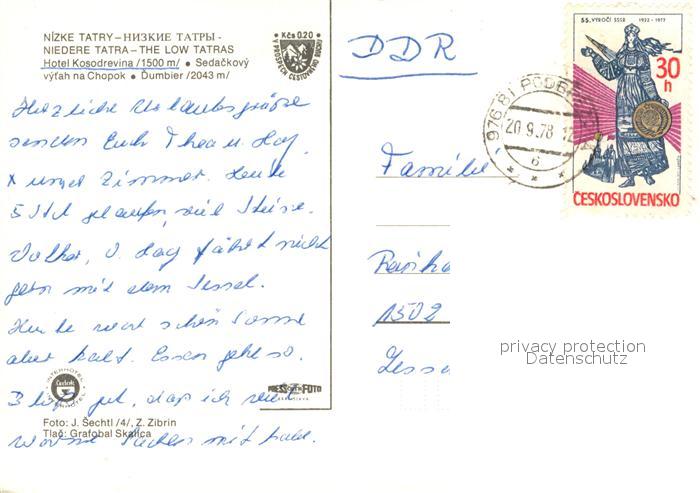 NÍZKE TATRY – НИЗКИЕ ТАТРЫ -
NIEDERE TATRA – THE LOW TATRAS
Hotel Kosodrevina /1500 m/ • Sedačkový
výťah na Chopok • Ďumbier /2043 m/
Kčs 0.20
V PROSPECH CESTOVNÉHO RUCHU
Herzliche Urlaubsgrüße
senden Euch Thea u. Haj
x unser Zimmer. Heute
5 Std gelaufen, viel Steine.
Volker, fährt nicht
gern mit dem Sessel.
Heute war schön Sonne
aber kalt. Essen geht so.
gut, daß ich viel
warme Sachen mit habe.
INTERHOTEL
Čedok
INTERHOTEL
PRESSFOTO
BRATISLAVA
Foto: J. Šechtl /4/, Z. Zibrin
Tlač: Grafobal Skalica
DDR
976 81 PODBREZ
20.9.78 12
6
55. VÝROČÍ SSSR 1922 - 1977
30
h
ČESKOSLOVENSKO
Familie
1502
privacy protection
Datenschutz